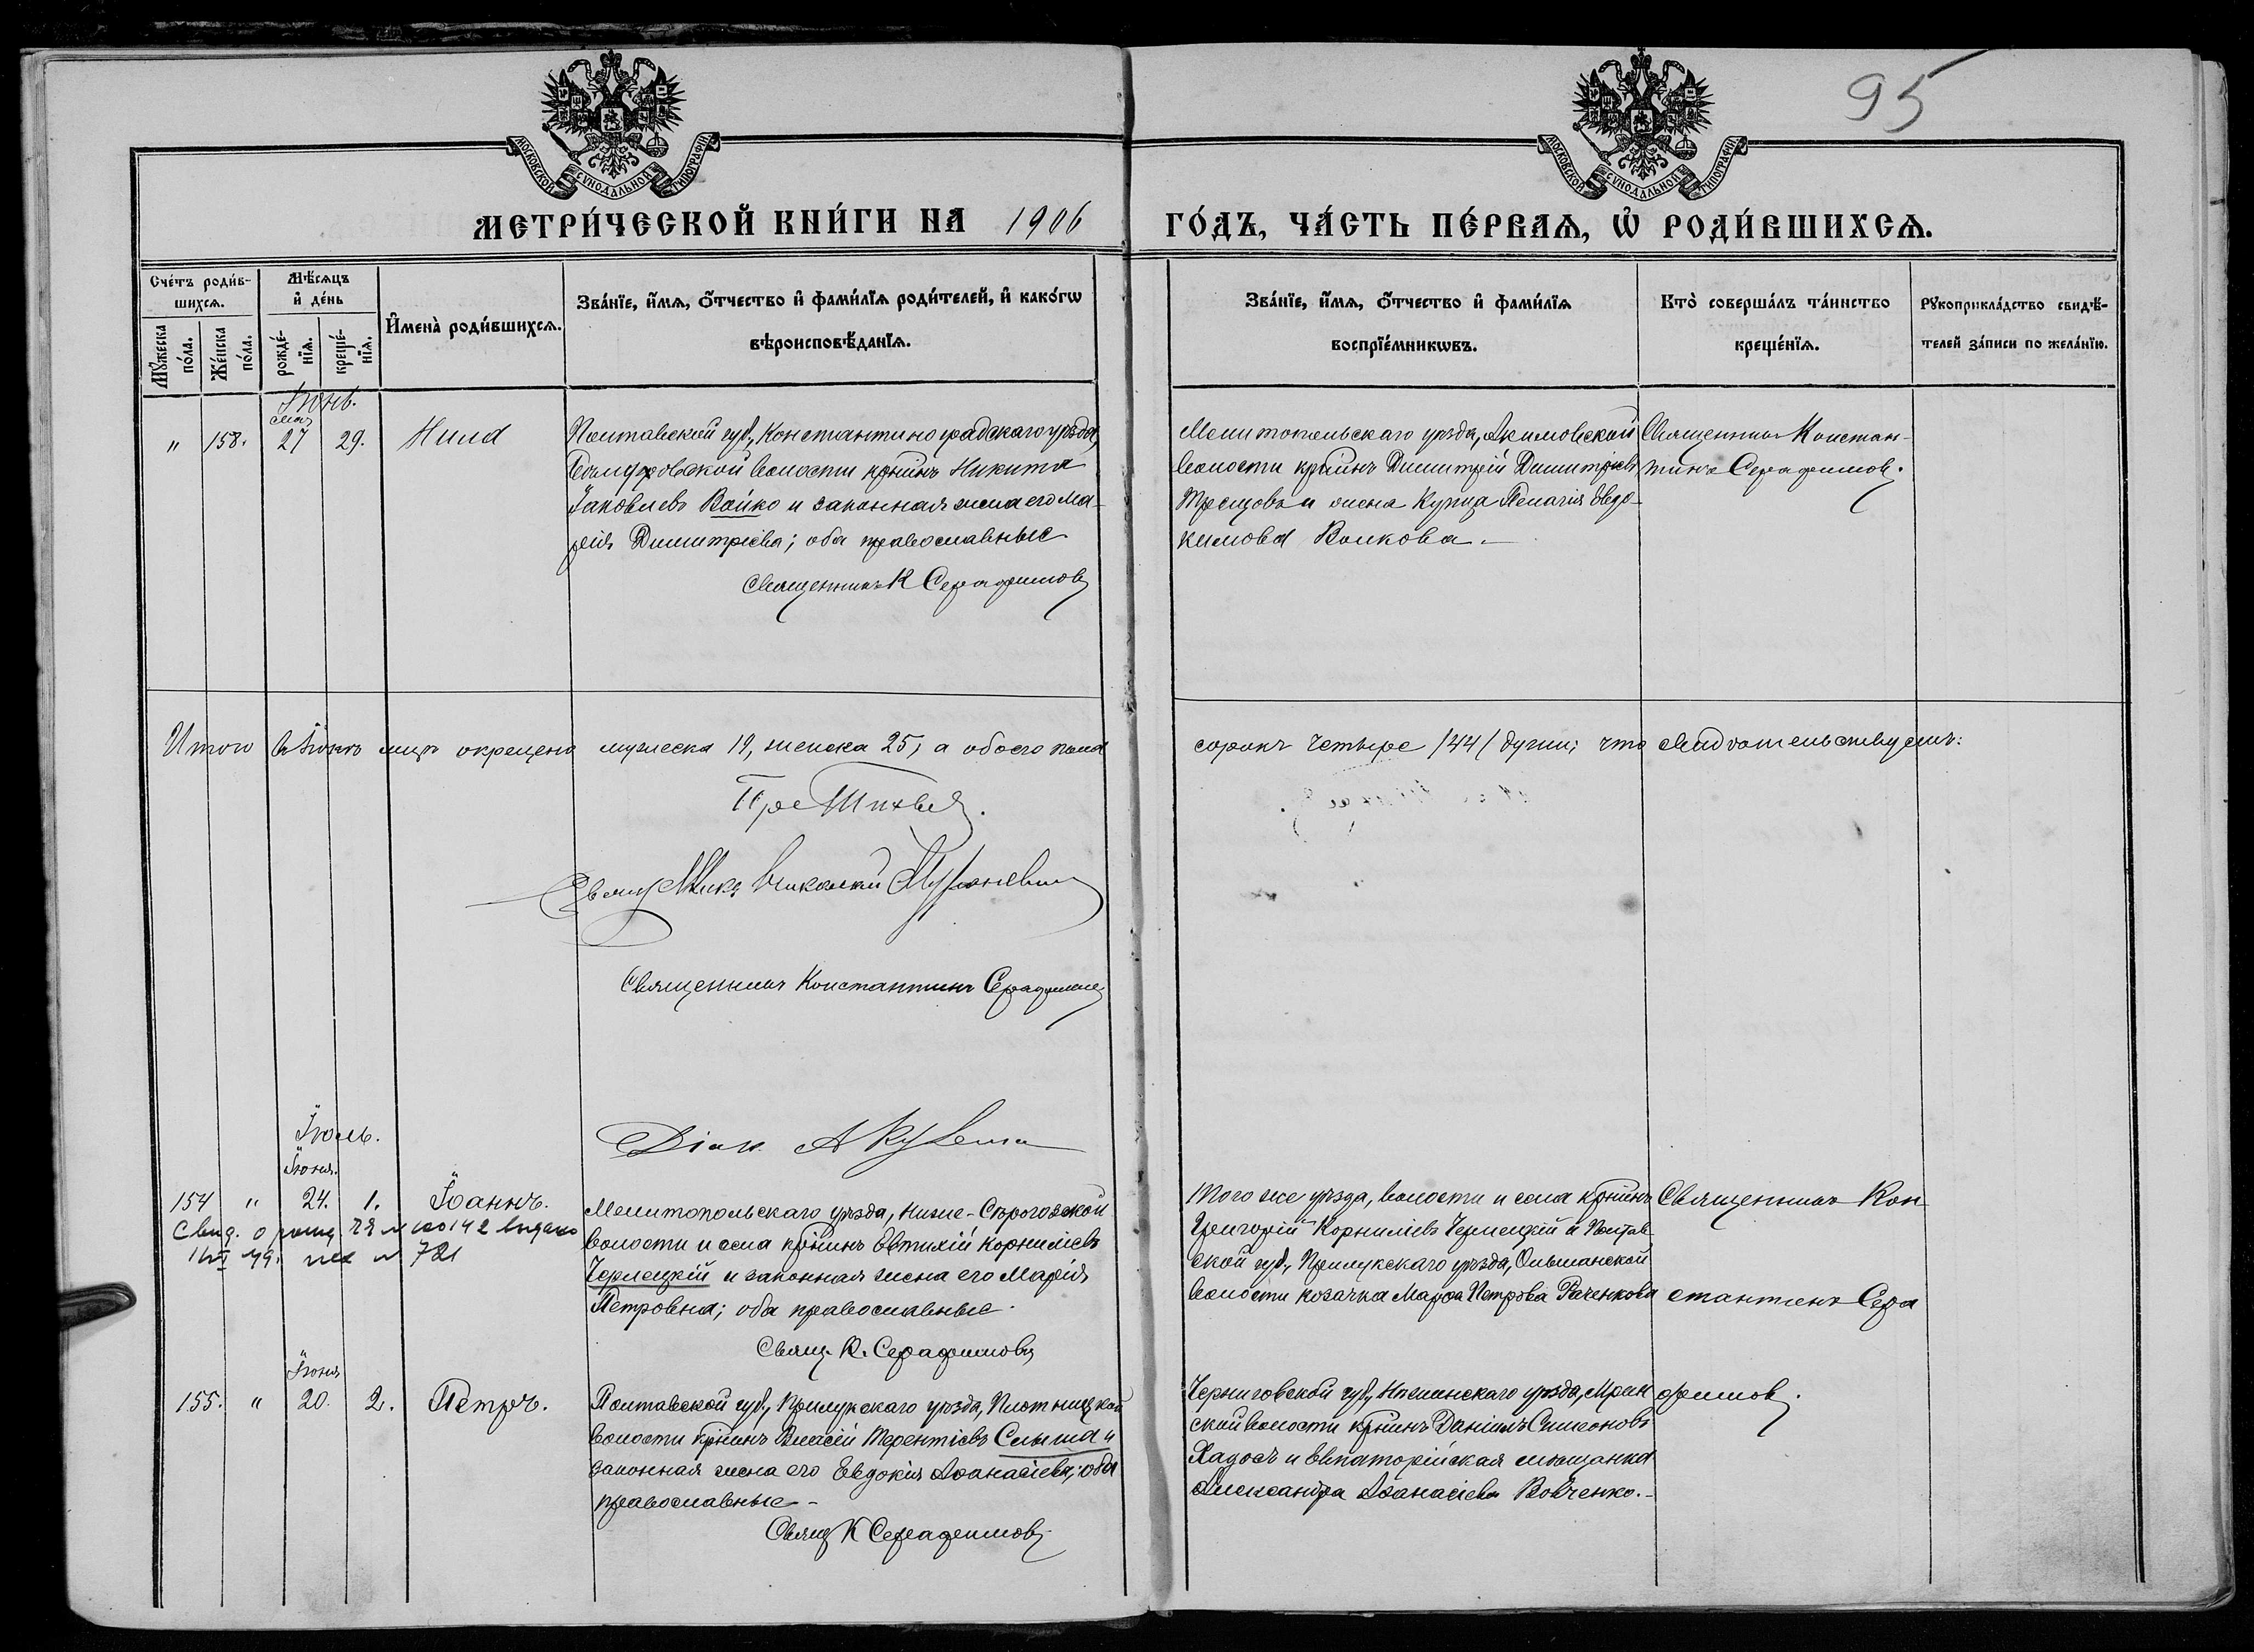 95
МОСКОВСКОЙ СѴНОДАЛЬНОЙ ТИПОГРАФІИ
МОСКОВСКОЙ СѴНОДАЛЬНОЙ ТИПОГРАФІИ
МЕТРИ́ЧЕСКОЙ КНИ́ГИ НА 1906 ГО́ДЪ, ЧА́СТЬ ПЕ́РВАѦ, Ѽ РОДИ́ВШИХСѦ.
Сче́тъ роди́в-
шихсѧ.
Мꙋ́жеска
по́ла.
Же́нска
по́ла.
Мѣ́сѧцъ
и҆ де́нь
рожде́-
нїѧ.
креще́-
нїѧ.
И҆мена̀ роди́вшихсѧ.
Зва́нїе, и҆́мѧ, ѻ҆́тчество и҆ фами́лїѧ роди́телей, и҆ како́гѡ
вѣроисповѣ́данїѧ.
Зва́нїе, и҆́мѧ, ѻ҆́тчество и҆ фами́лїѧ
воспрїе́мникѡвъ.
Кто̀ соверша́лъ та́инство
креще́нїѧ.
Рꙋкоприкла́дство свидѣ́-
телей за́писи по жела́нїю.
Іюнь.
" 158. 27 29. Нина
Полтавской губ., Константиноградскаго уѣзда,
волости крнинъ Никита
Іаковлевъ Войко и законная жена его Ма-
рія Димитріева; оба православные
Священникъ К Серафимовъ
Мелитопольскаго уѣзда, Акимовской
волости крнинъ Димитрій Димитріевъ
и жена купца Пелагія Евдо-
кимова Волкова.-
Священникъ Констан-
тинъ Серафимовъ.
Итого въ Іюнѣ мцѣ окрещено мужеска 19, женска 25, а обоего пола сорокъ четыре /44/ души; что свидѣтельствуемъ:
Священникъ Константинъ Серафимовъ
Діак. А
Іюль.
Іюня.
154 " 24. 1. Іоаннъ.
Свид. о рожд. выдано
721
Мелитопольскаго уѣзда, Нижне-Сѣрогозской
волости и села крнинъ Евтихій Корниліевъ
Черлецкій и законная жена его Марія
Петровна; оба православные.
Свящ. К. Серафимовъ
Того же уѣзда, волости и села крнинъ
Григорій Корниліевъ Черлецкій и Полтав-
ской губ., Прилукскаго уѣзда, Ольшанской
волости козачка Марѳа Петрова
Священникъ Кон
стантинъ Сера
фимовъ.
Іюня
155. " 20. 2. Петръ.
Полтавской губ., Прилукскаго уѣзда,
волости крнинъ Власій Терентіевъ и
законная жена его Евдокія Аѳанасіева; оба
православные -
Свящ К Серафимовъ
Черниговской губ., Нѣжинскаго уѣзда, Мрин
ской волости крнинъ Даніилъ Симеоновъ
и евпаторійская мѣщанка
Александра Аѳанасіева Вовченко.-